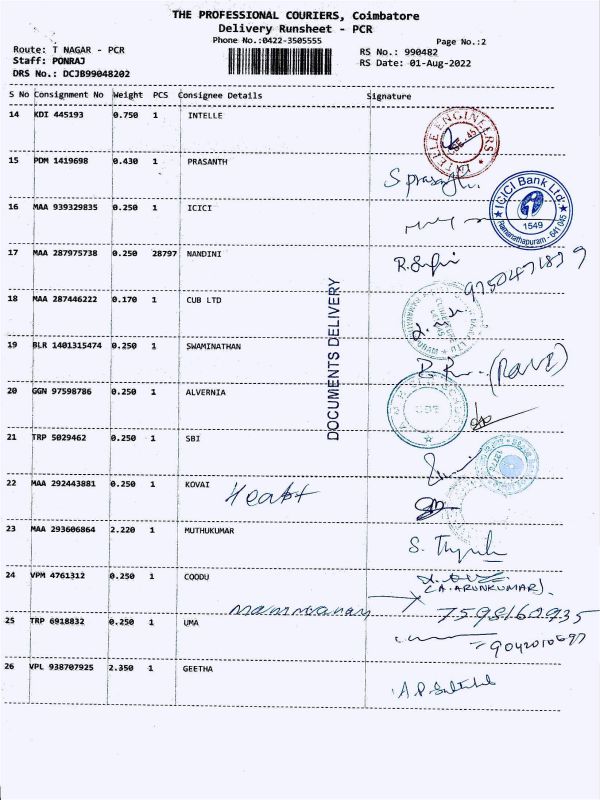 THE PROFESSIONAL COURIERS, Coimbatore
Delivery Runsheet - PCR
Phone No.:0422-3505555
Page No.:2
Route: T NAGAR - PCR
RS No.: 990482
Staff: PONRAJ
RS Date: 01-Aug-2022
DRS No.: DCJB99048202
S No Consignment No Weight PCS Consignee Details Signature
14 KDI 445193 0.750 1 INTELLE
INTELLE ENGINEERS
15 PDM 1419698 0.430 1 PRASANTH
16 MAA 939329835 0.250 1 ICICI
ICICI Bank Ltd
1549
Ramanathapuram - 641 045
17 MAA 287975738 0.250 28797 NANDINI
18 MAA 287446222 0.170 1 CUB LTD
DOCUMENTS DELIVERY
19 BLR 1401315474 0.250 1 SWAMINATHAN
(RAVI)
20 GGN 97598786 0.250 1 ALVERNIA
21 TRP 5029462 0.250 1 SBI
22 MAA 292443881 0.250 1 KOVAI
23 MAA 293606864 2.220 1 MUTHUKUMAR
24 VPM 4761312 0.250 1 COODU
(A. ARUNKUMAR).
7598162935
25 TRP 6918832 0.250 1 UMA
26 VPL 938707925 2.350 1 GEETHA